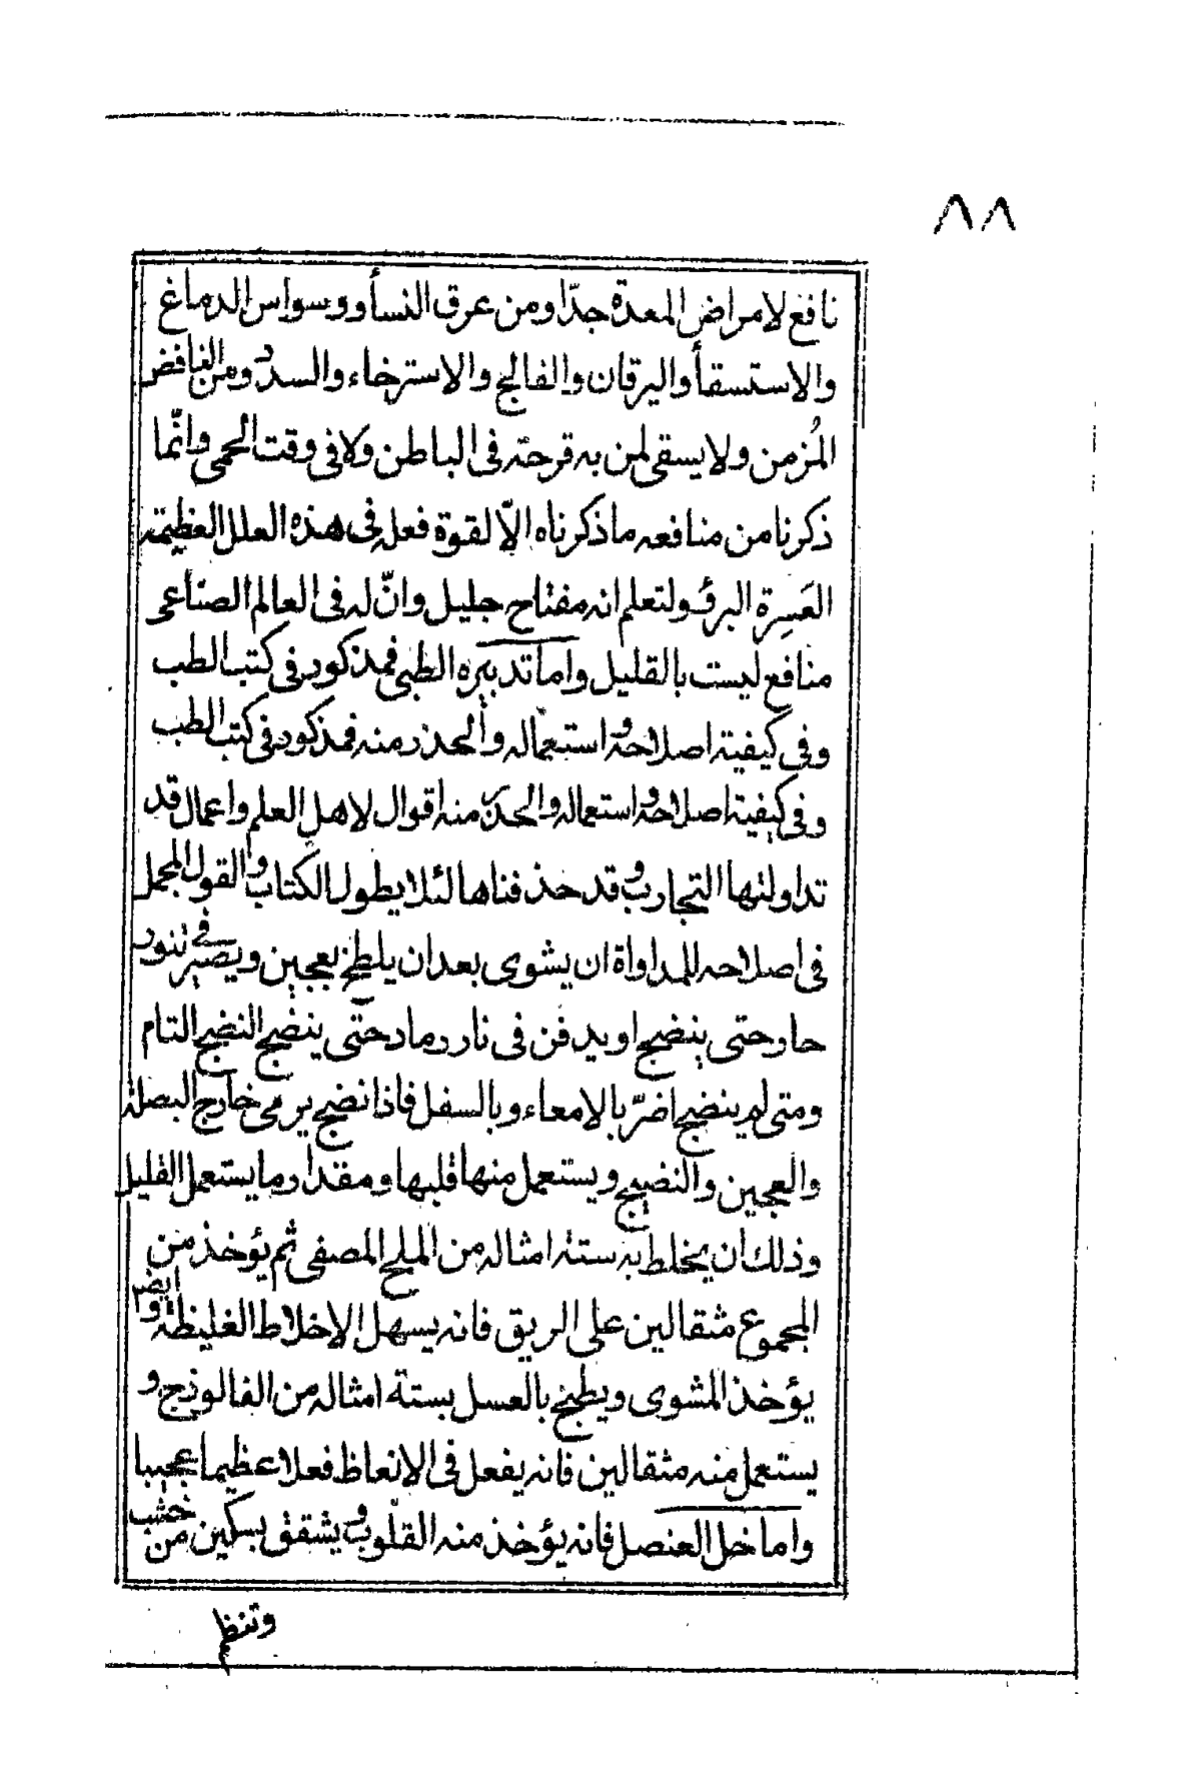 ٨٨
نافع لامراض المعدة جدّا ومن عرق النسأ ووسواس الدماغ
والاستسقأ واليرقان والفالج والاسترخاء والسدد ومن النافض
المُزمن ولا يسقى لمن به قرحة فى الباطن ولا فى وقت الحمى وانّما
ذكرنا من منافعه ما ذكرناه الاّ لقوة فعله فى هذه العلل العظيمة
العَسِرة البرؤ ولتعلم انه مفتاح جليل وانّ له فى العالم الصناعى
منافع ليست بالقليل واما تدبيره الطبى فمذكور فى كتب الطب
وفى كيفية اصلاحه واستعماله والحذر منه فمذكور فى كتب الطب
وفى كيفية اصلاحه واستعماله والحذر منه اقوال لاهل العلم واعمال قد
تداولتها التجارب وقد حذفناها لئلا يطول الكتاب والقول المجمل
فى اصلاحه للمداواة ان يشوى بعد ان يلطخ بعجين ويصير فى تنور
حار حتى ينضج او يدفن فى نار رماد حتّى ينضج النضج التام
ومتى لم ينضج اضرّ بالامعاء وبالسفل فاذا نضج يرمى خارج البصلة
والعجين والنضيج ويستعمل منها قلبها ومقدار ما يستعمل القليل
وذلك ان يخلط به ستة امثاله من الملح المصفى ثم يؤخذ من
المجموع مثقالين على الريق فانه يسهل الاخلاط الغليظة وايض
يؤخذ المشوى ويطبخ بالعسل بستة امثاله من الفالوذج و
يستعمل منه مثقالين فانه يفعل فى الانعاظ فعلا عظيما عجيبا
واما خل العنصل فانه يؤخذ منه القلوب ويشقق بسكين من خشب
وتنظم